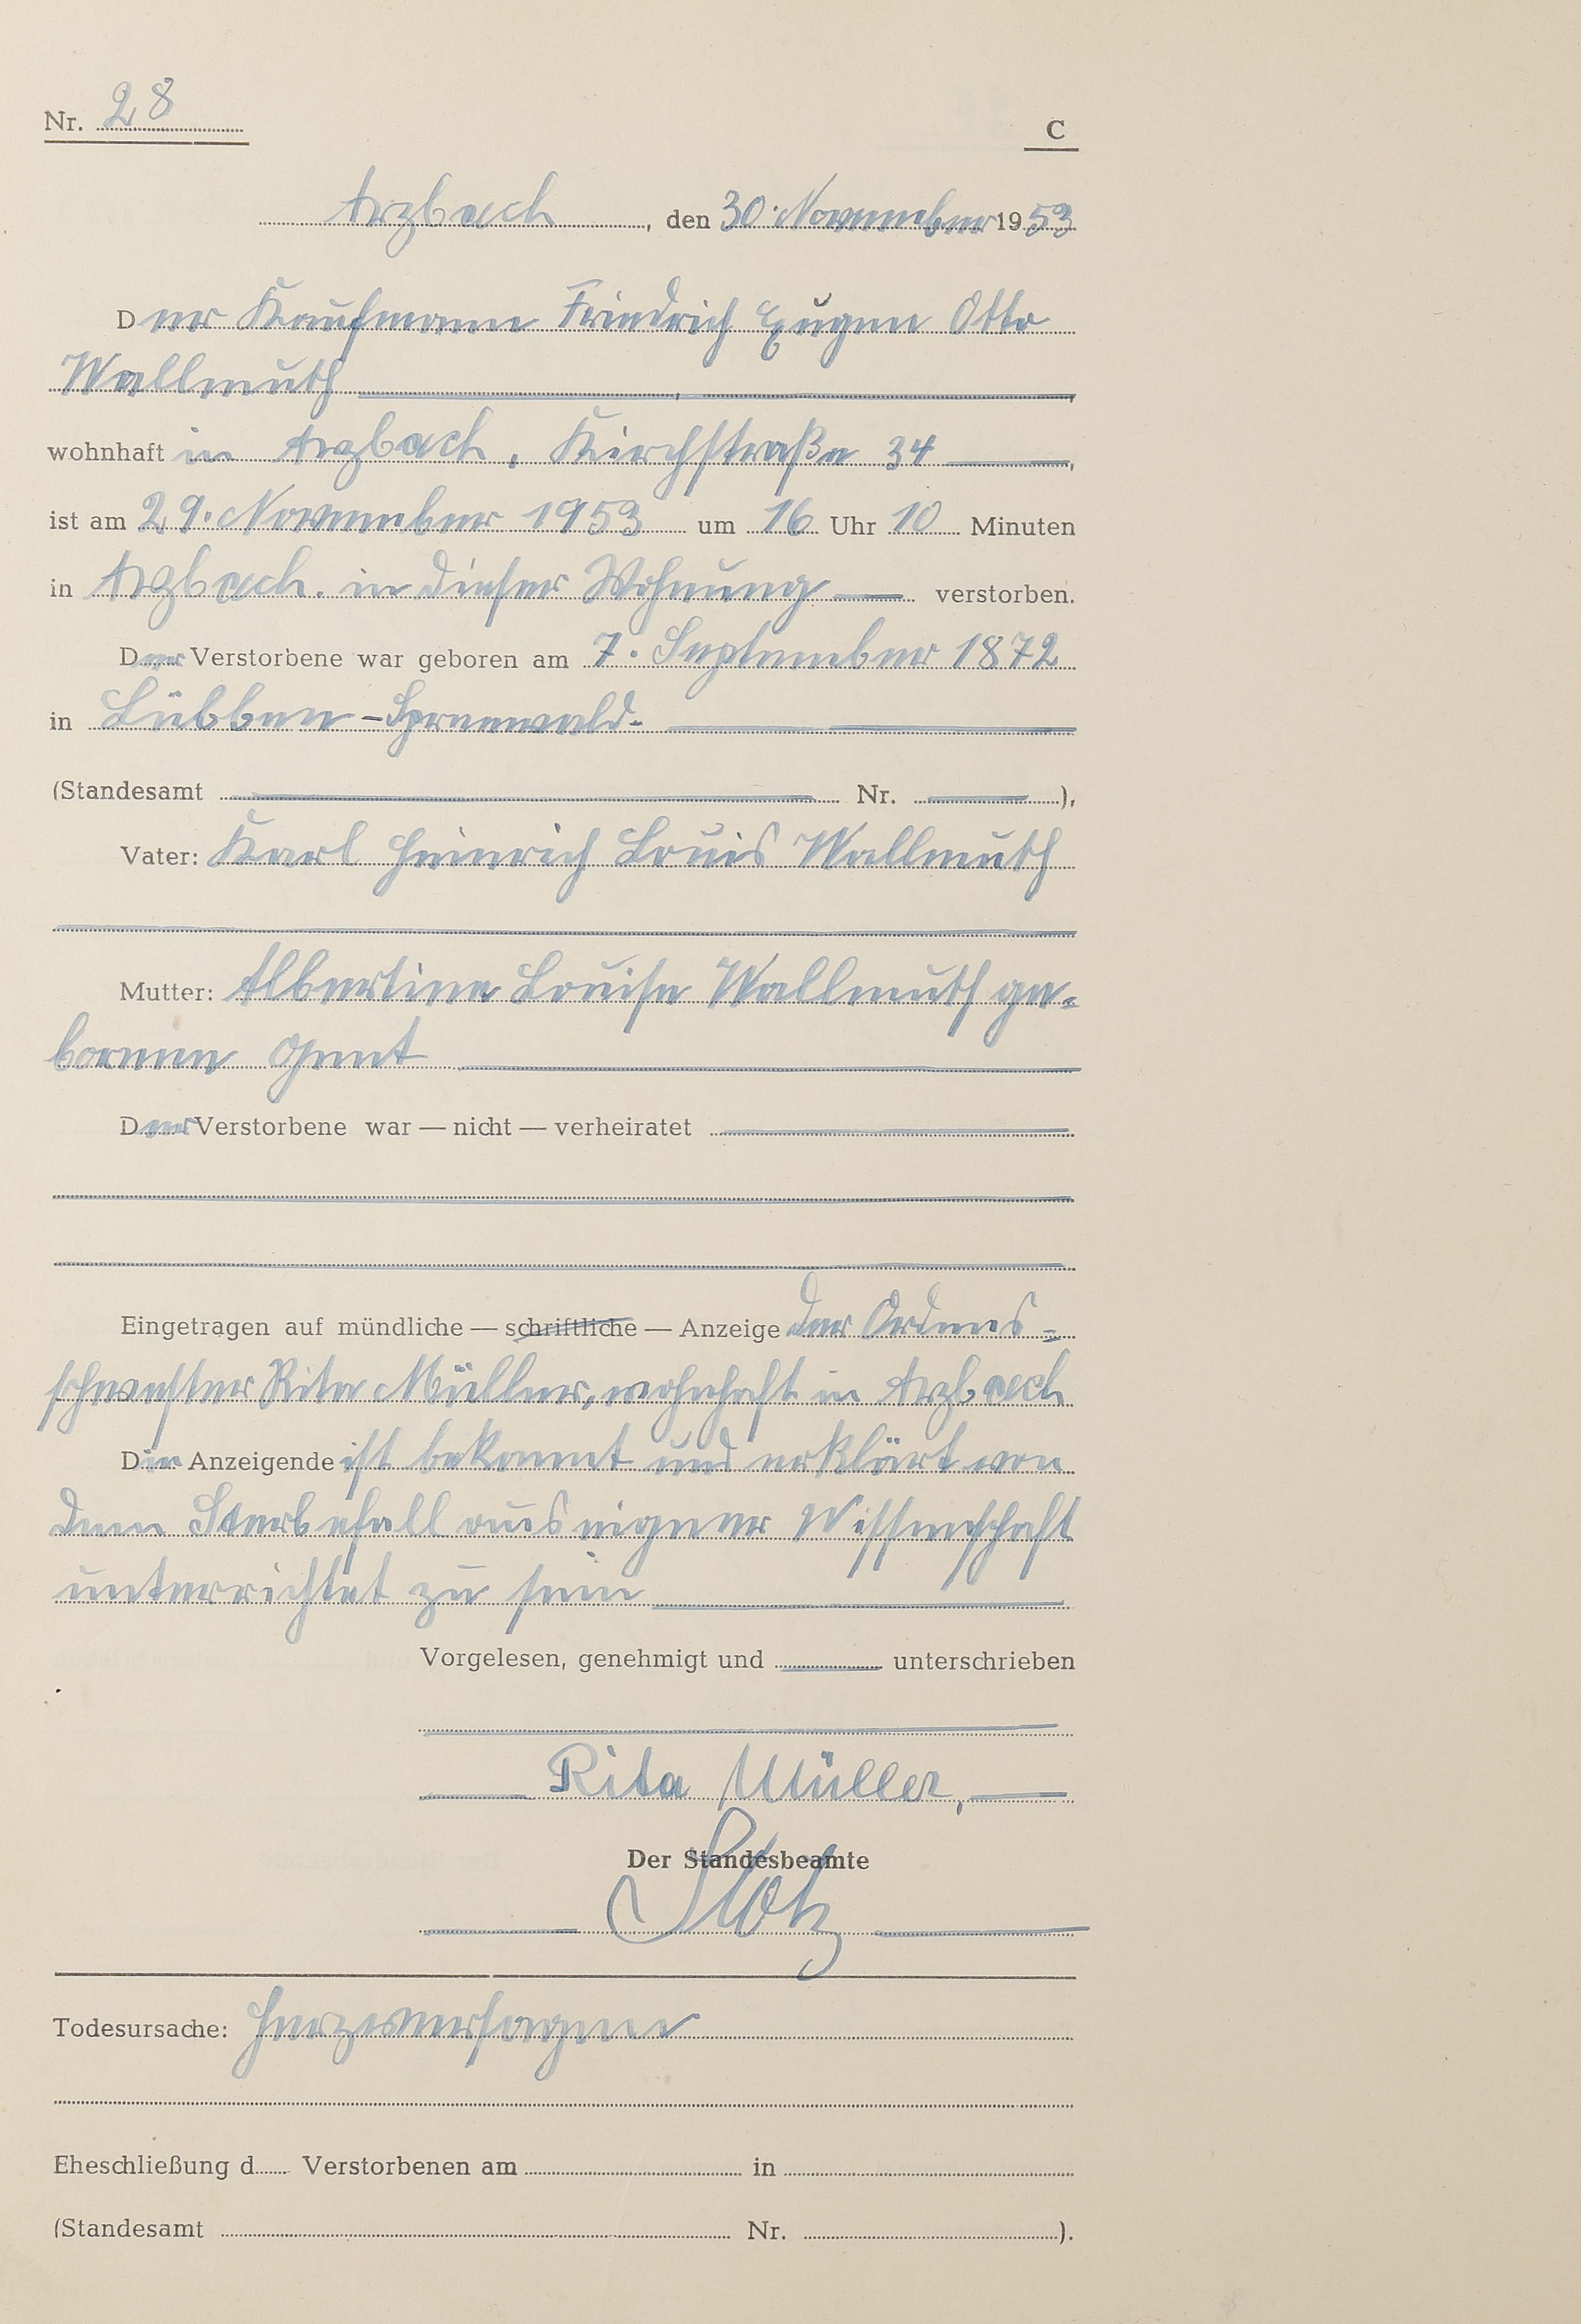 Nr. 28
C
Arzbach, den 30. November 1953
Der Kaufmann Friedrich Eugen Otto
Wallmuth
wohnhaft in Arzbach, Kirchstraße 34,
ist am 29. November 1953 um 16 Uhr 10 Minuten
in Arzbach. in dieser Wohnung verstorben.
Der Verstorbene war geboren am 7. September 1872
in Lübben-Spreewald-
(Standesamt Nr. ),
Vater: Karl Heinrich Louis Wallmuth
Mutter: Albertine Louise Wallmuth ge-
borenen Gent
Der Verstorbene war — nicht — verheiratet
Eingetragen auf mündliche — schriftliche — Anzeige der Ordens-
schwester Rita Müller, wohnhaft in Arzbach
Die Anzeigende ist bekannt und erklärt von
dem Sterbefall aus eigener Wissenschaft
unterrichtet zu sein
Vorgelesen, genehmigt und unterschrieben
Rita Müller,
Der Standesbeamte
Stotz
Todesursache: Herzversagen
Eheschließung d Verstorbenen am in
(Standesamt Nr. ).